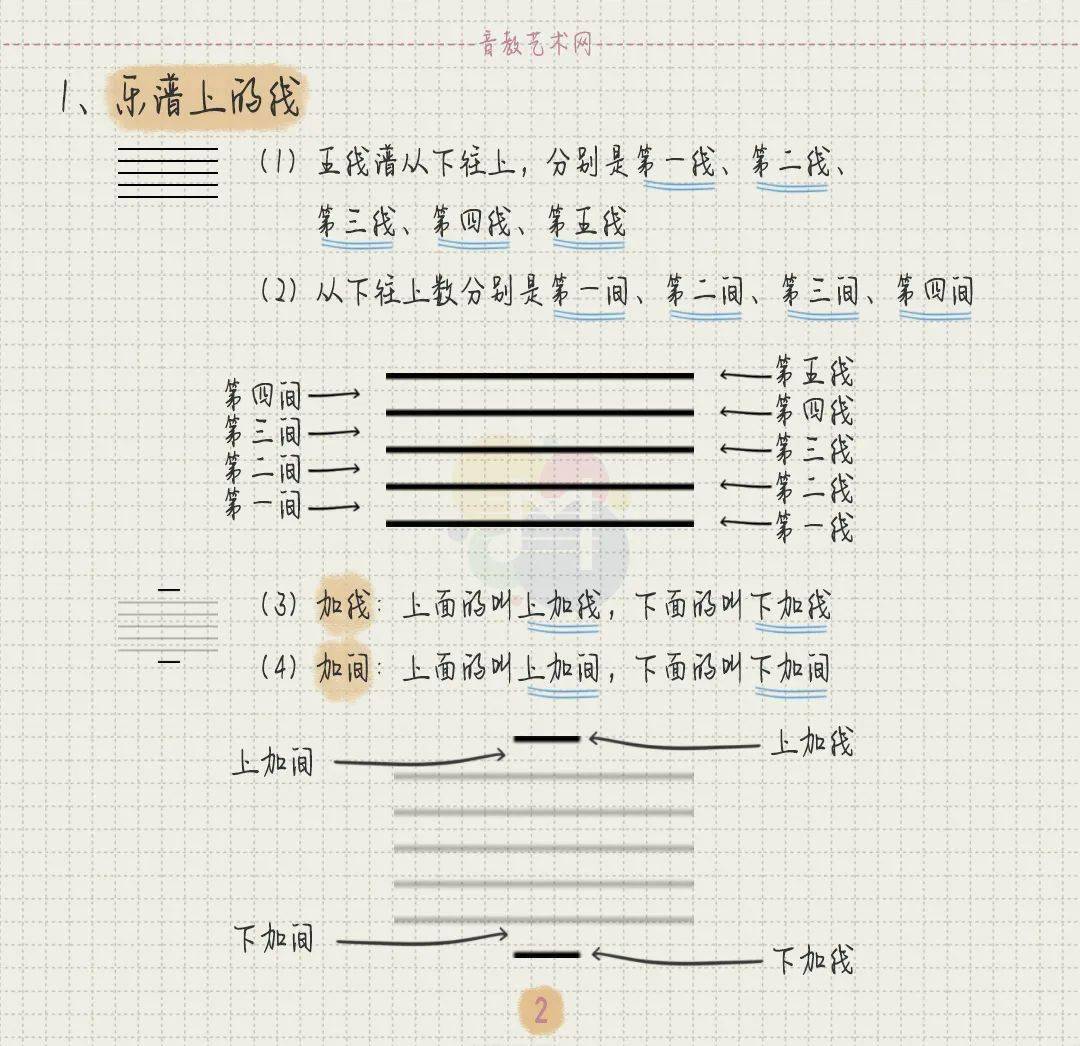 音教艺术网
1、乐谱上的线
(1) 五线谱从下往上,分别是第一线、第二线、
第三线、第四线、第五线
(2) 从下往上数分别是第一间、第二间、第三间、第四间
第五线
第四间
第四线
第三间
第三线
第二间
第二线
第一间
第一线
(3) 加线:上面的叫上加线,下面的叫下加线
(4) 加间:上面的叫上加间,下面的叫下加间
上加线
上加间
下加间
下加线
2